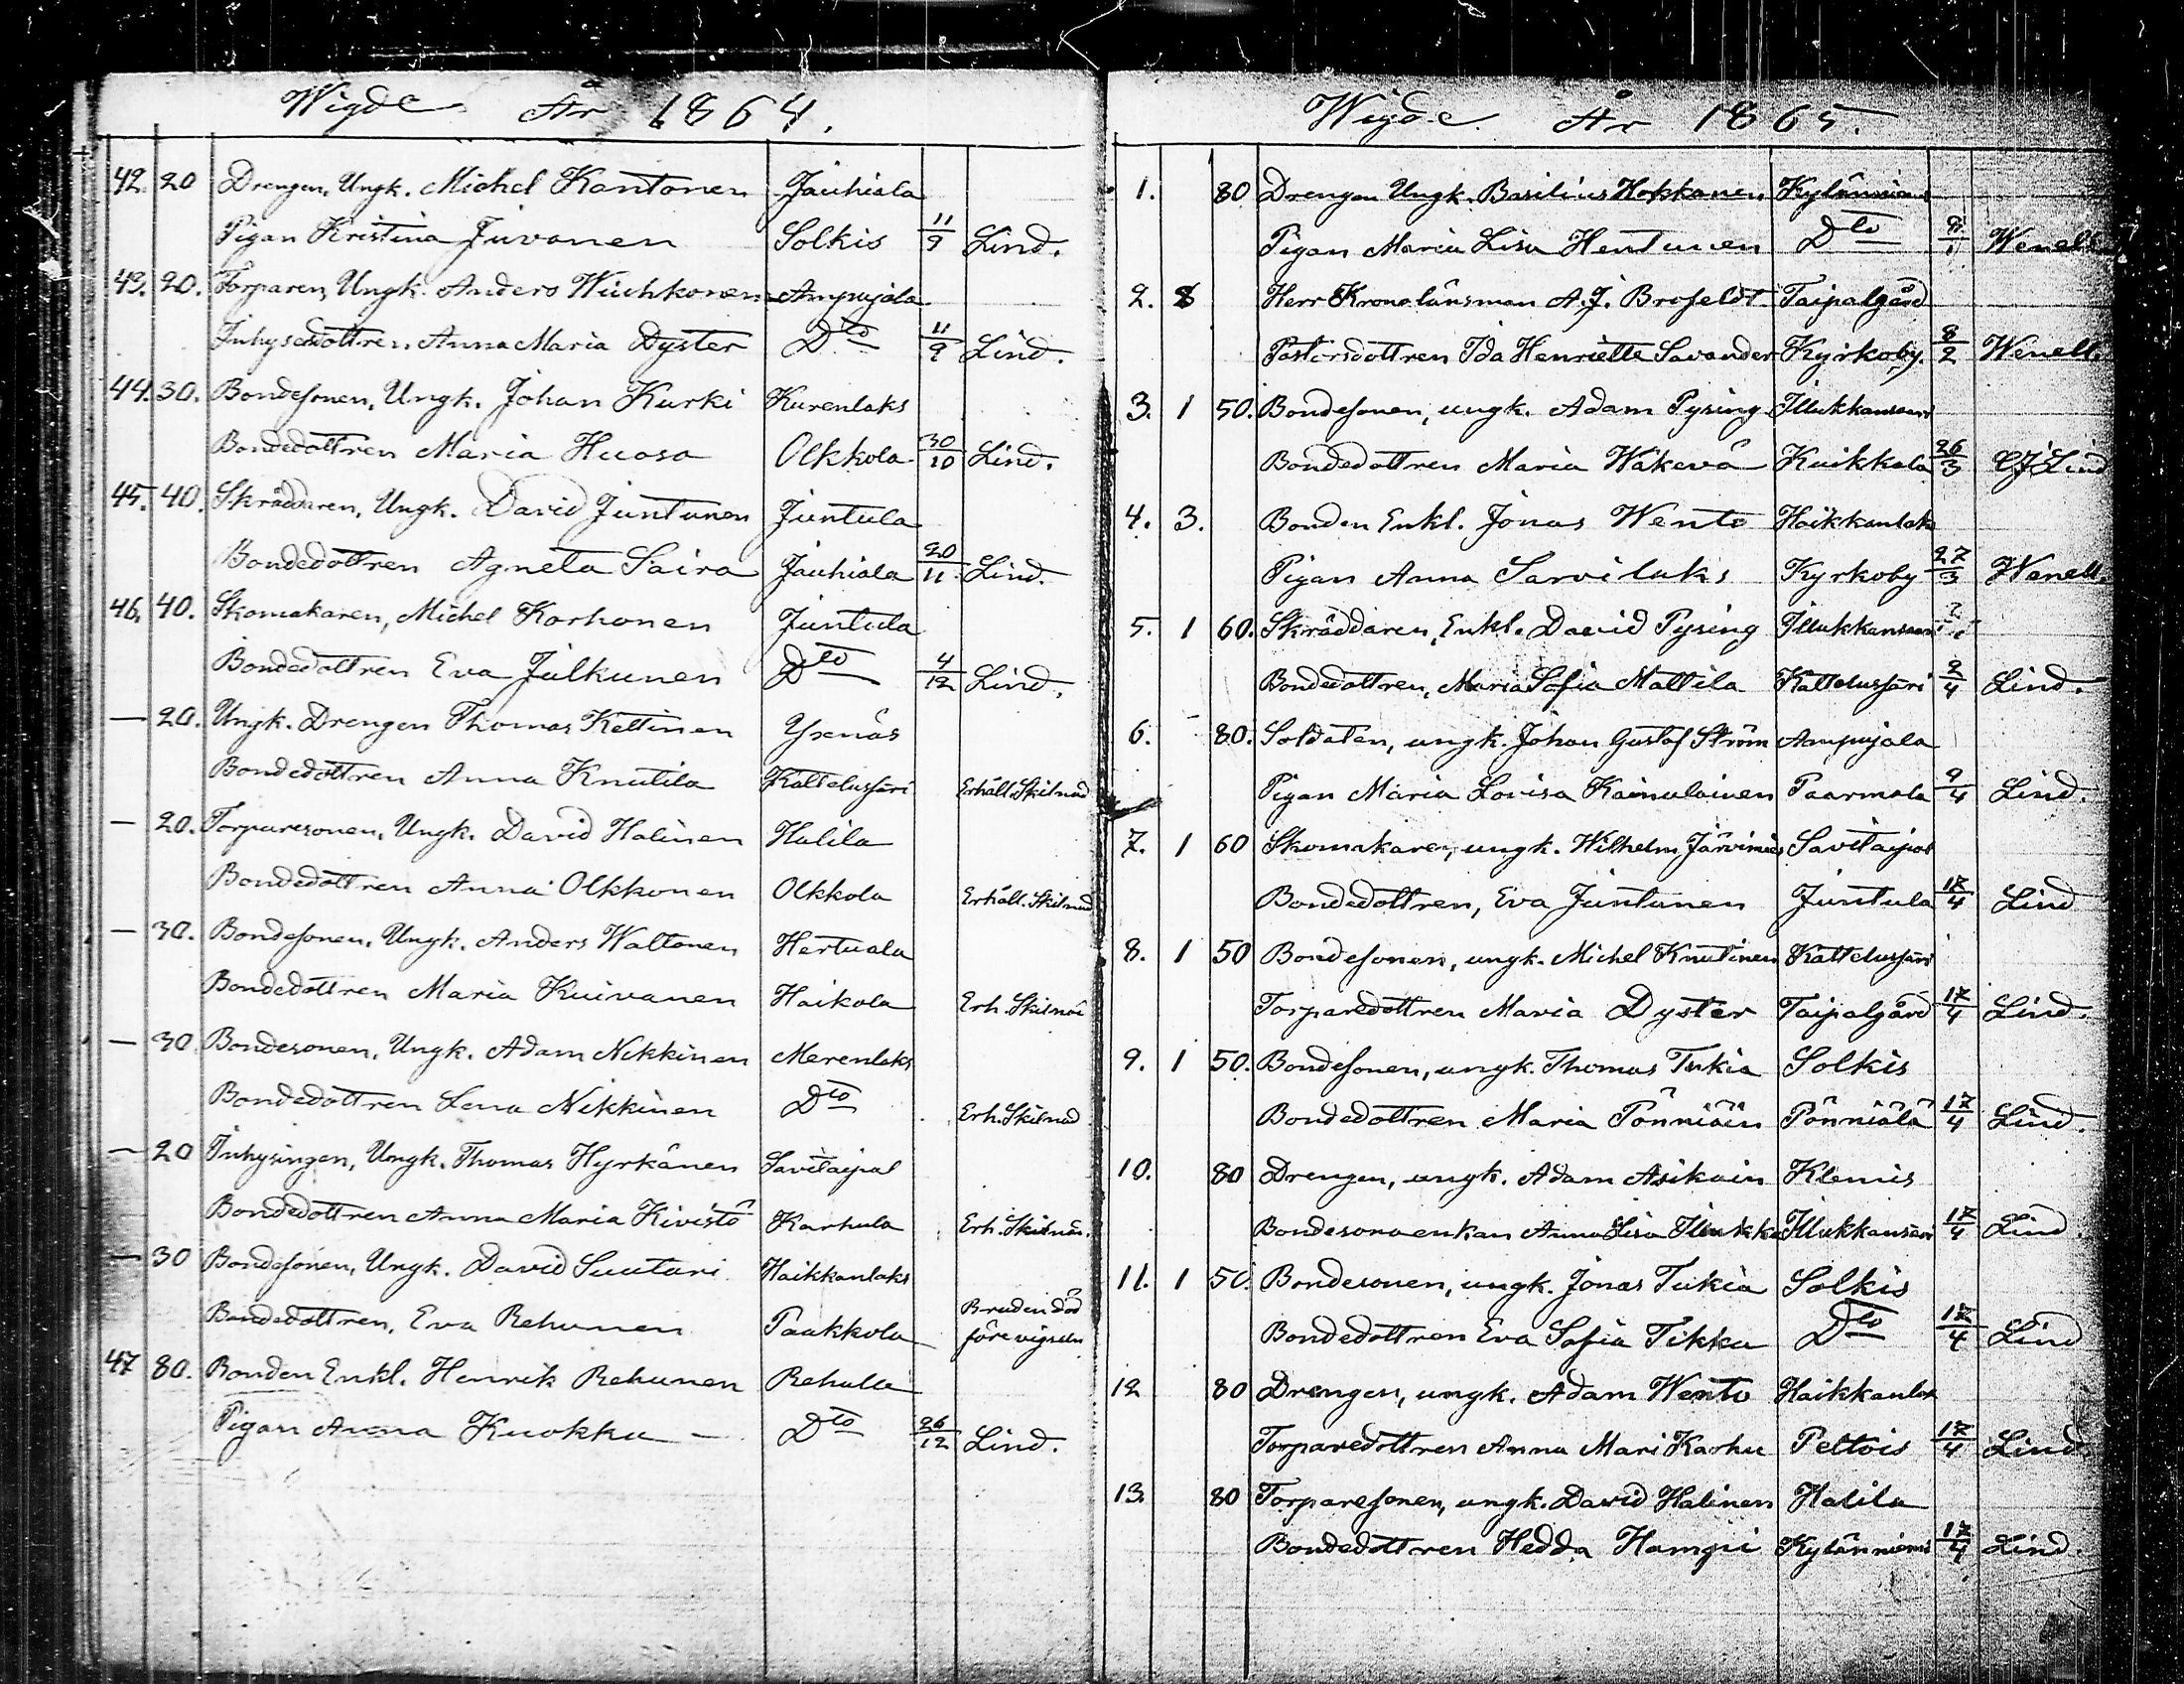 Wigde År 1864.
42. 20 Drengen, Ungk. Michel Kantonen Jauhiala
Pigan Kristina Juvonen Solkis 11/9 Lind.
43. 20. Torparen, Ungk. Anders Wiuhkonen Ampujala
Inhysesdottren Anna Maria Dyster Dto 11/9 Lind.
44. 30. Bondesonen, Ungk. Johan Kurki Kurenlaks
Bondedottren Maria Huosa Olkkola 30/10 Lind.
45. 40. Skräddaren, Ungk. David Juntunen Juntula
Bondedottren Agneta Saira Jauhiala 20/11. Lind.
46. 40. Skomakaren, Michel Korhonen Juntula
Bondedottren Eva Julkunen Dto 4/12 Lind.
— 20. Ungk. Drengen Thomas Kettinen Yxenäs
Bondedottren Anna Knutila Kattelussari Erhåll. Skilnad
— 20. Torparesonen, Ungk. David Halinen Halila
Bondedottren Anna Olkkonen Olkkola Erhåll. Skilnad
— 30. Bondesonen, Ungk. Anders Waltonen Hertuala
Bondedottren Maria Kuivanen Haikola Erh. Skilnad
— 30 Bondesonen, Ungk. Adam Nikkinen Merenlaks
Bondedottren Lena Nikkinen Dto Erh. Skilnad
— 20 Inhysingen, Ungk. Thomas Hyrkänen Savitaipal
Bondedottren Anna Maria Kivistö Karhula Erh. Skilnad.
— 30 Bondesonen, Ungk. David Suutari Haikkanlaks
Bondedottren, Eva Rehunen Paakkola Bruden död före vigseln
47 80. Bonden Enkl. Henrik Rehunen Rehula
Pigan Anna Kuokka — Dto 26/12 Lind.
Wigde År 1865.
1. 80 Drengen Ungk. Basilius Hokkanen Kylänniemi
Pigan Maria Lisa Hentunen Dto Wenell
2. 8 Herr Kronolänsman A. J. Brofeldt Taipalgård
Pastorsdottren Ida Henriette Savander Kyrkoby. 8/2 Wenell
3. 1 50. Bondesonen, ungk. Adam Pysing Illukkansaari
Bondedottren Maria Wäkevä Kuikkala 26/3 CJ Lind
4. 3. Bonden Enkl. Jonas Wento Haikkanlaks
Pigan Anna Sarvilaks Kyrkoby 27/3 Wenell.
5. 1 60. Skräddaren, Enkl. David Pysing Illukkansaari
Bondedottren, Maria Sofia Mattila Kattelussari 2/4 Lind.
6. 80. Soldaten, ungk. Johan Gustaf Ström Ampujala
Pigan Maria Lovisa Kainulainen Paarmala 9/4 Lind.
7. 1 60 Skomakaren, ungk. Wilhelm Järvinies Savitaipal
Bondedottren, Eva Juntunen Juntula 17/4 Lind
8. 1 50 Bondesonen, ungk. Michel Knutinen Kattelussari
Torparedottren Maria Dyster Taipalgård 17/4 Lind.
9. 1 50. Bondesonen, ungk. Thomas Tukia Solkis
Bondedottren Maria Pönniäin Pönniälä 17/4 Lind.
10. 80 Drengen, ungk. Adam Asikain Klemis
Bondesonaenkan Anna Lisa Illukka Illukkansaari 17/4 Lind.
11. 1 50. Bondesonen, ungk. Jonas Tukia Solkis
Bondedottren Eva Sofia Tikka Dto 17/4 Lind
12 80 Drengen, ungk. Adam Wento Haikkanlax
Torparedottren Anna Mari Karhu Peltois 17/4 Lind.
13. 80 Torparesonen, ungk. David Halinen Halila
Bondedottren Hedda Hampii Kylänniemi 17/4 Lind.